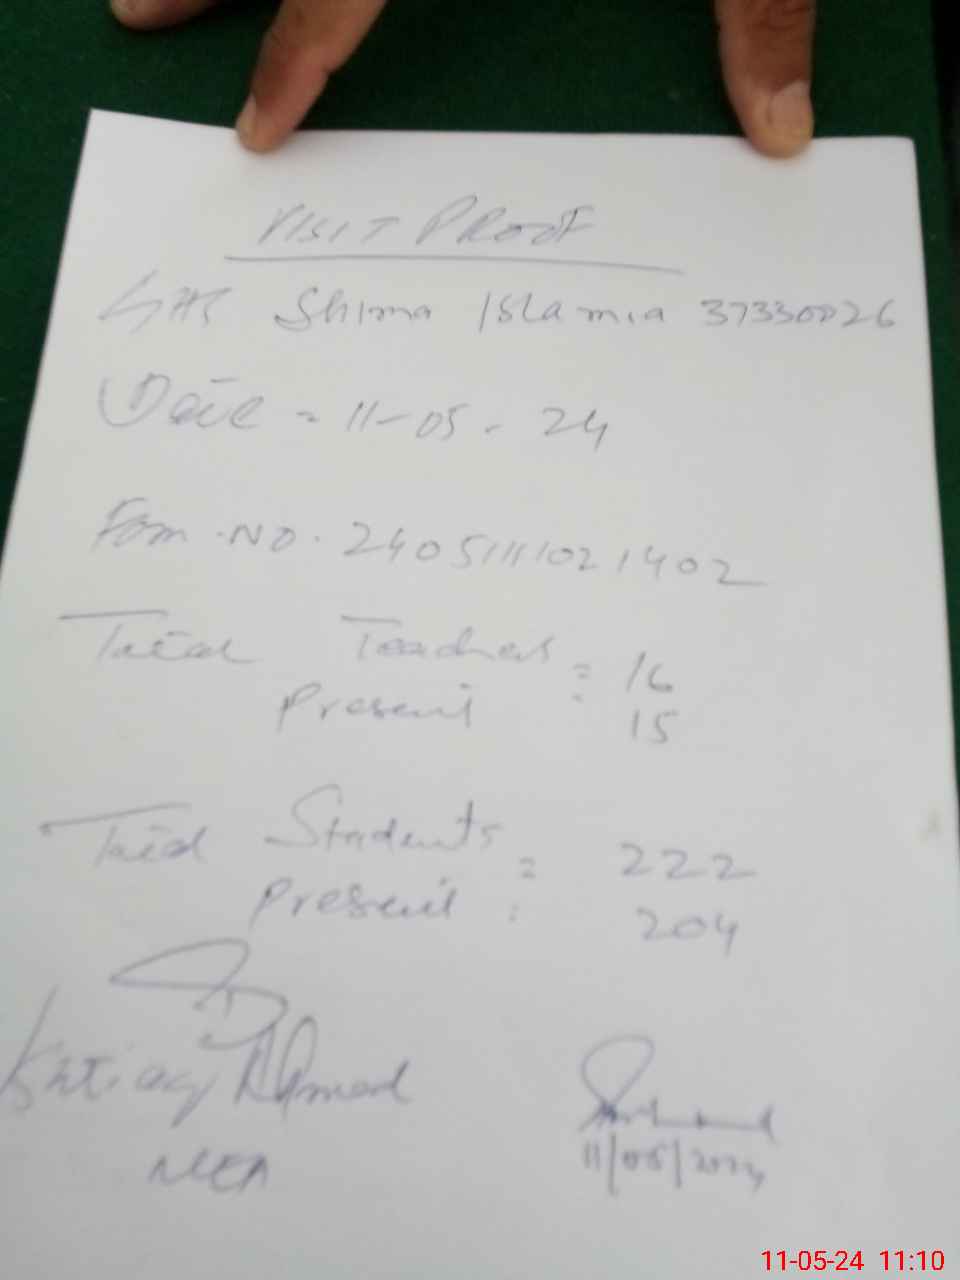 VISIT PROOF
GHS Shima Islamia 37330026
Date = 11-05-24
Fom. NO. 240511111021402
Total Teachers = 16
Present : 15
Total Students = 222
Present : 204
Ishtiaq Ahmed
MEA
11/05/2024
11-05-24 11:10